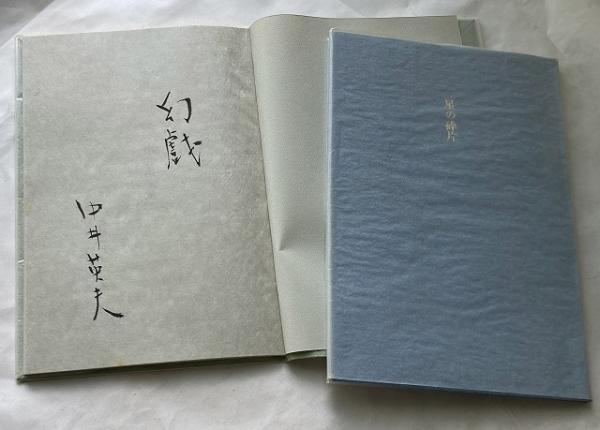 幻戯
中井英夫
星の砕片